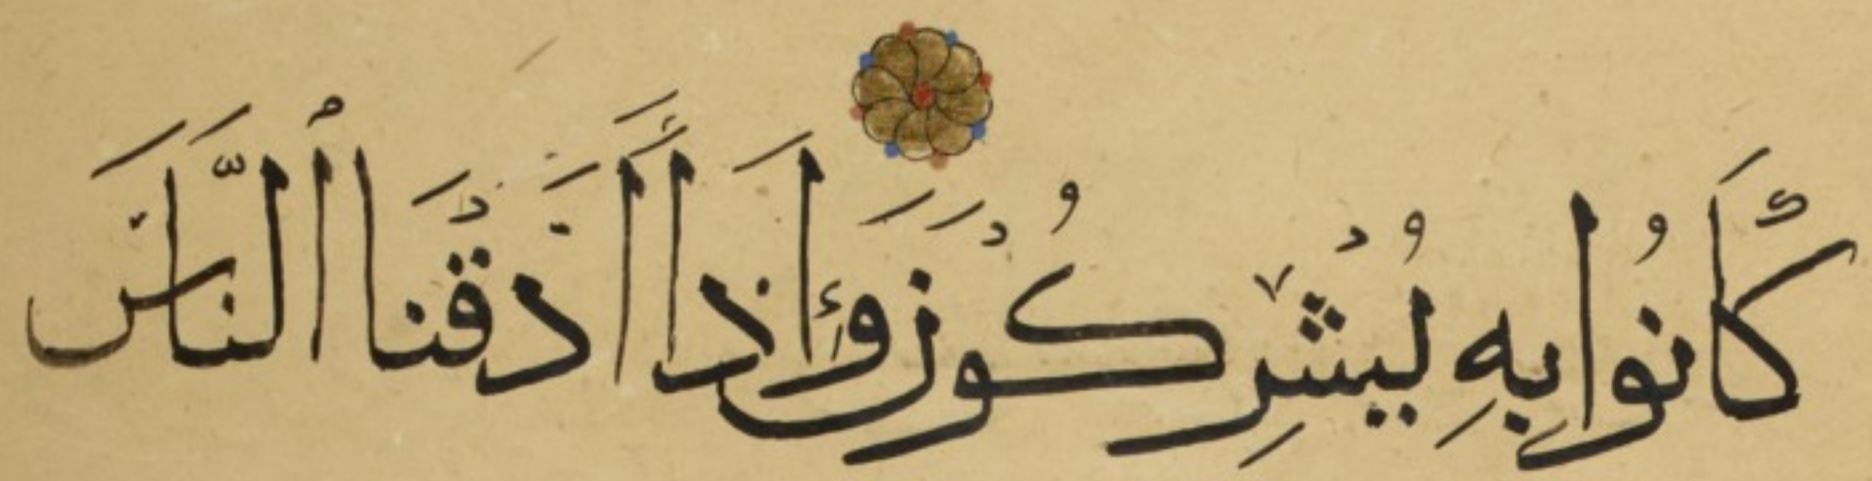 كَانُوا بِهِ يُشْرِكُونَ وَإِذَا أَذَقْنَا ٱلنَّاسَ